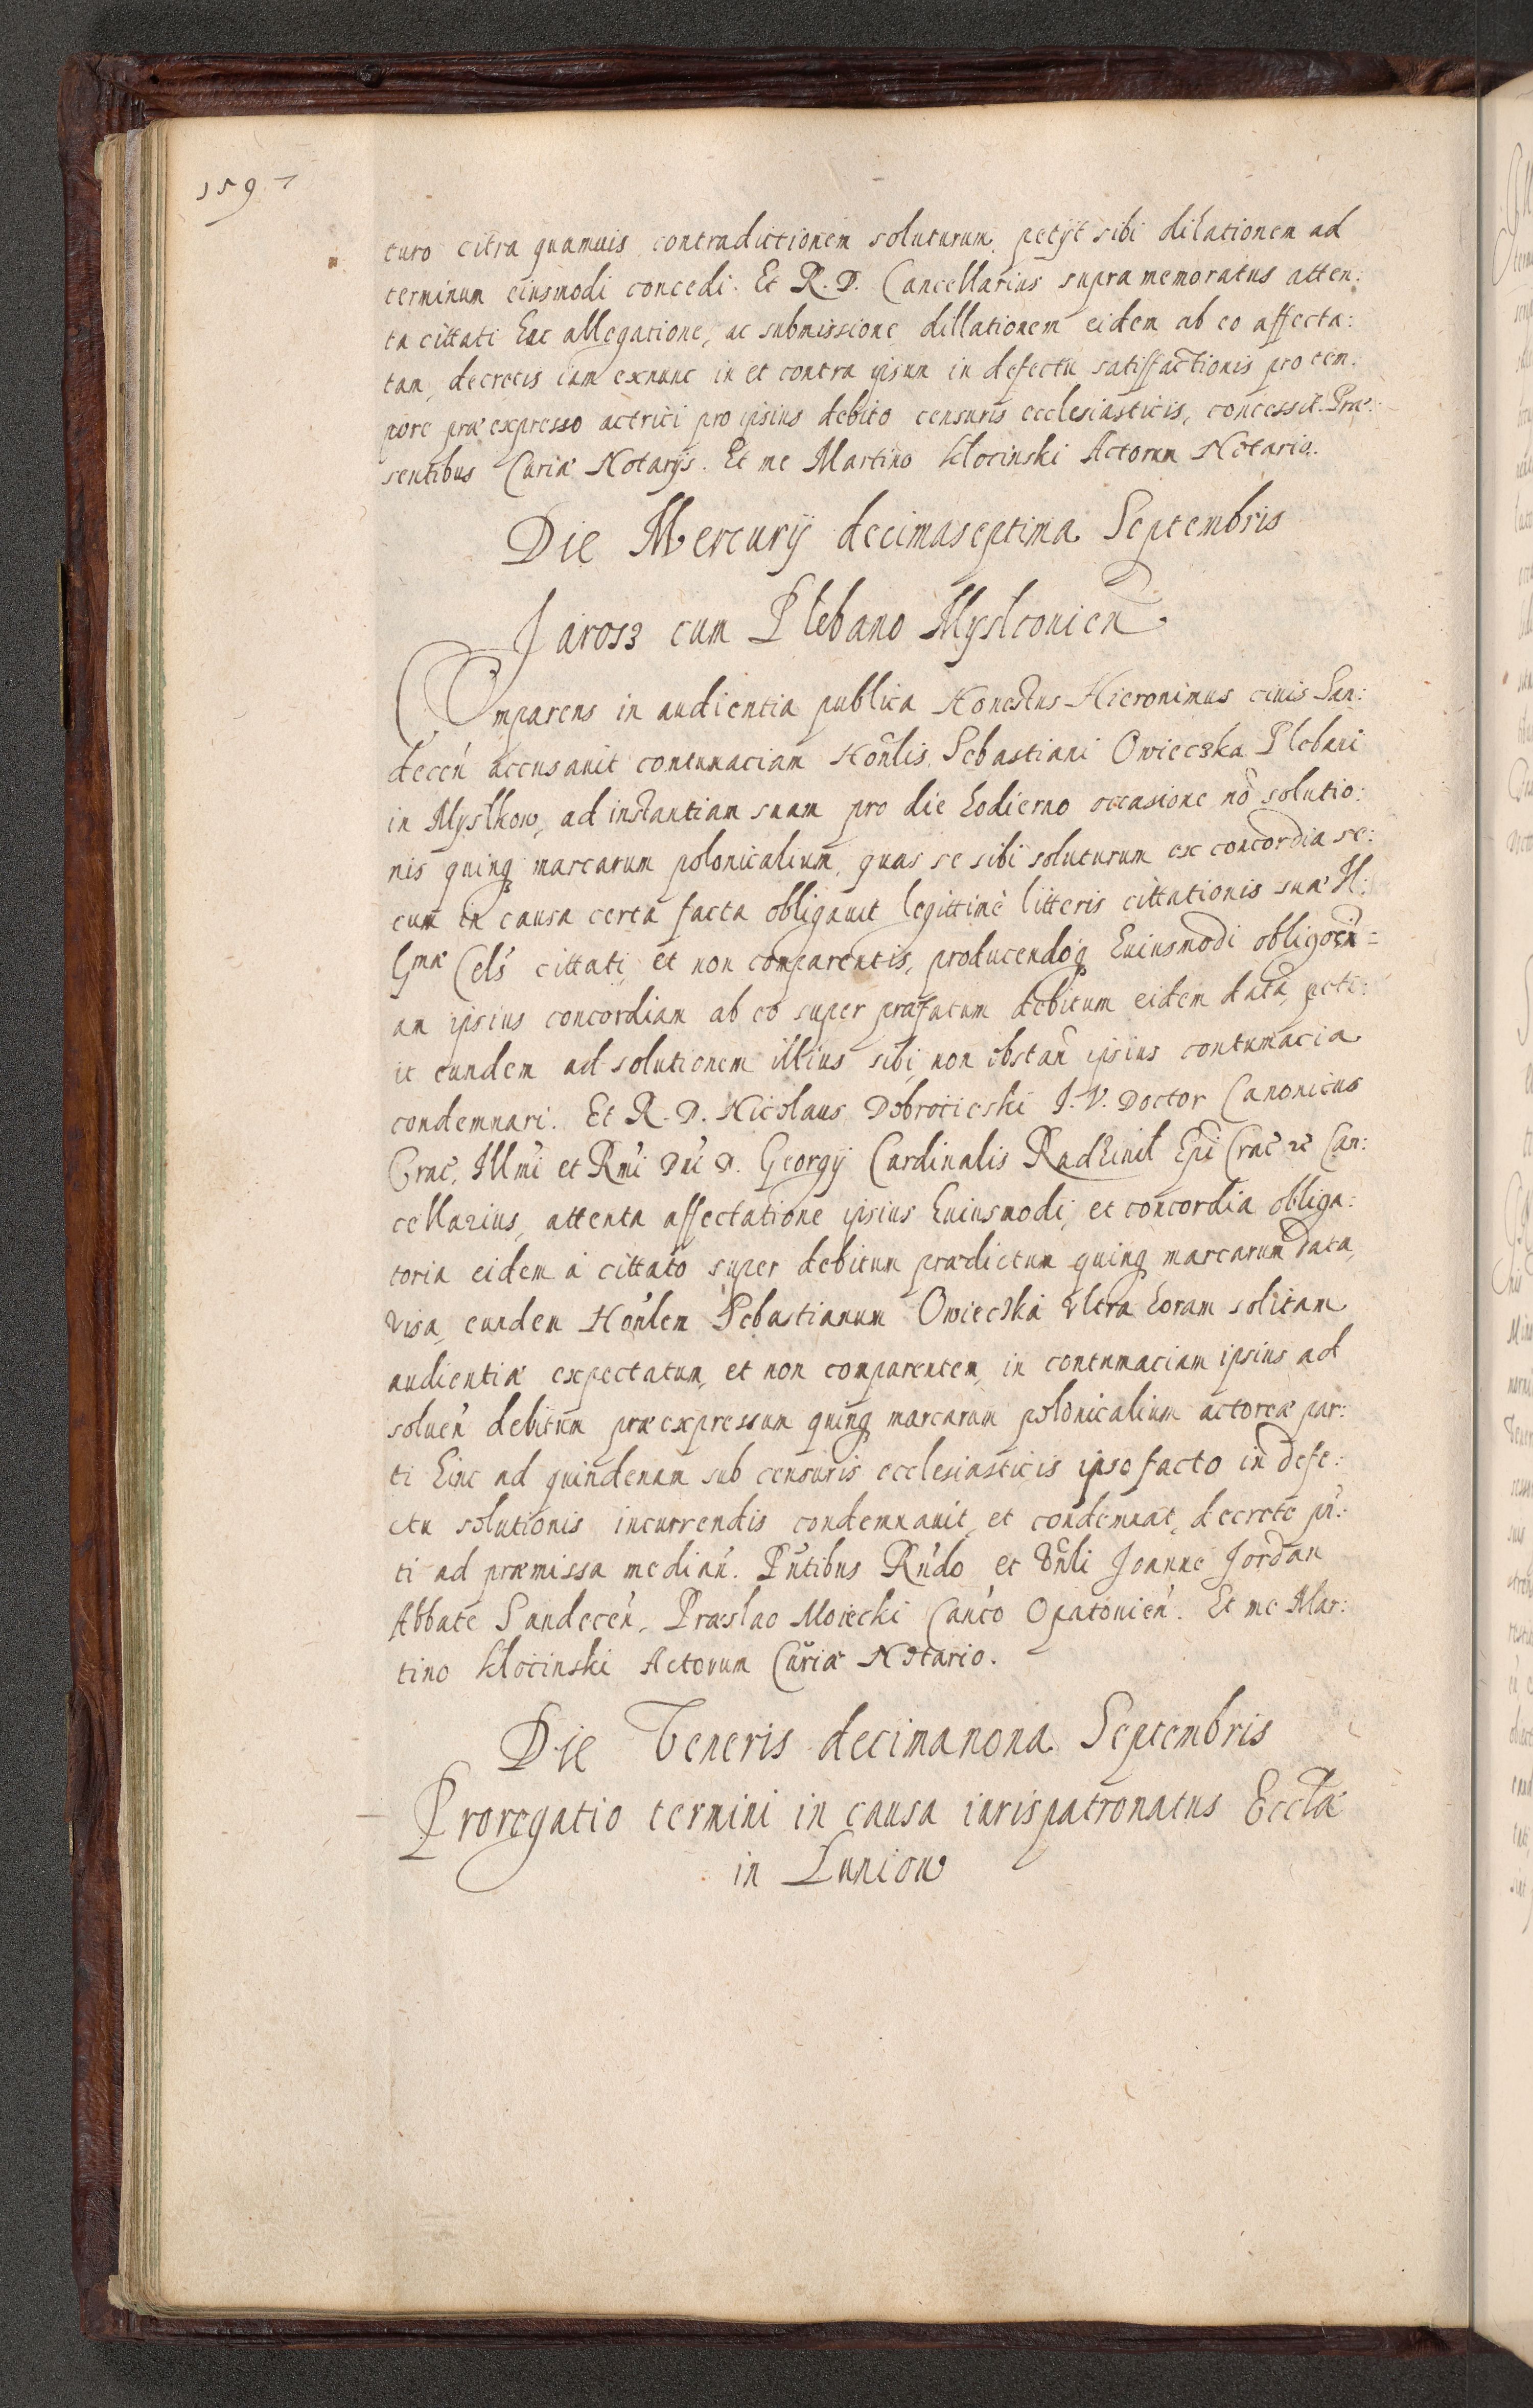 1597
turo citra quamuis contradictionem soluturum, petijt sibi dilationem ad
terminum eiusmodi concedi. Et R. D. Cancellarius supra memoratus atten:
ta cittati hac allegatione, ac submissione, dillationem eidem ab eo affecta:
tam, decretis iam exnunc in et contra ipsum in defectu satisfactionis pro tem:
pore præexpresso actrici pro ipsius debito censuris ecclesiasticis, concessit. Præ:
sentibus Curiæ Notarijs. Et me Martino Klocinski Actorum Notario.
Die Mercurij decimaseptima Septembris
Jarosz cum Plebano Myslconien̄.
Comparens in audientia publica Honestus Hieronimus ciuis San:
decen̄ accusauit contumaciam Hon̄lis Sebastiani Owieczka Plebani
in Myslkow, ad instantiam suam pro die hodierno occasione nō solutio:
nis quinq marcarum polonicalium, quas se sibi soluturum ex concordia se:
cum in causa certa facta obligauit legittimè litteris cittationis suæ Il:
Gmæ Cels̄ cittati, et non comparentis, producendoq huiusmodi
am ipsius concordiam ab eo super præfatum debitum eidem data, peti:
it eundem ad solutionem illius sibi, non obstan̄ ipsius contumacia
condemnari. Et R. D. Nicolaus Dobrocieski J. V. Doctor Canonicus
Crac̄, Illm̄i et Rm̄i Dn̄i D. Georgij Cardinalis Radziuil Ep̄i Crac̄ &c̄ Can:
cellarius, attenta affectatione ipsius huiusmodi, et concordia obliga:
toria eidem à cittato super debitum prædictum quinq marcarum data,
visa, eundem Hon̄lem Sebastianum Owieczka vltra horam solitam
audientiæ expectatum, et non comparentem, in contumaciam ipsius ad
soluen̄ debitum præexpressum quinq marcarum polonicalium actoreæ par:
ti hinc ad quindenam sub censuris ecclesiasticis ipso facto in defe:
ctu solutionis incurrendis condemnauit, et condemnat, decreto pn̄:
ti ad præmissa median̄. Pn̄tibus Rn̄do et Vn̄li Joanne Jordan
Abbate Sandecen̄, Præslao Moiecki Can̄co Opatouien̄. Et me Mar:
tino Klocinski Actorum Curiæ Notario.
Die Veneris decimanona Septembris
Prorogatio termini in causa iurispatronatus Eccl̄æ
in Luniow